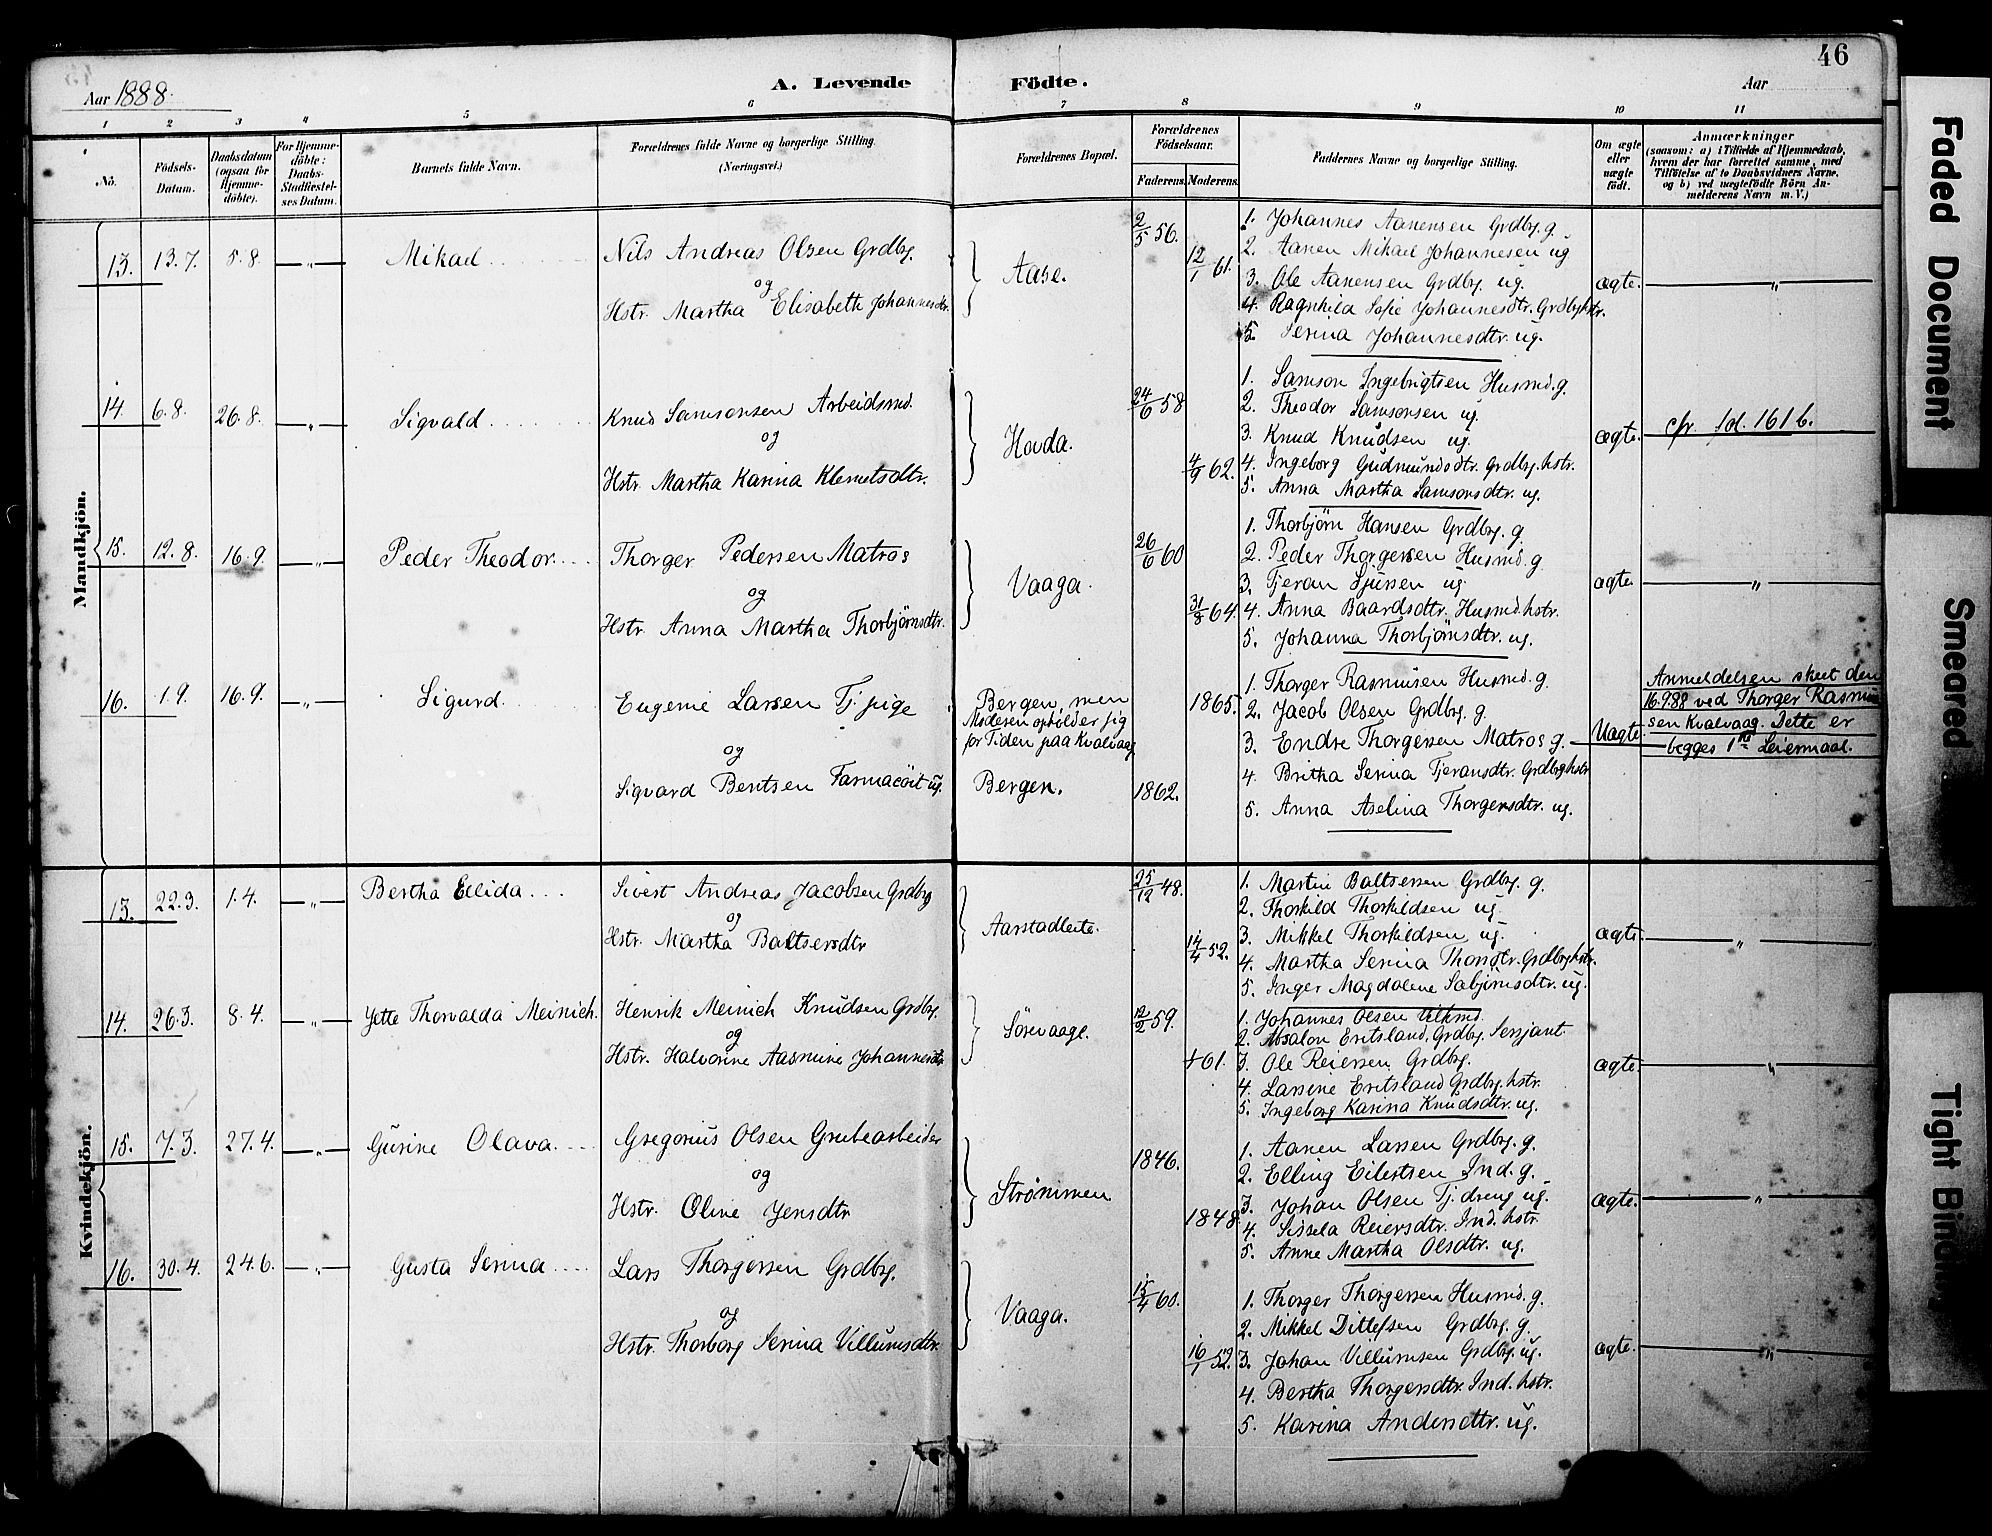 46
Aar 1888.
A. Levende Födte.
Aar
1 2 3 4 5 6 7 8 9 10 11
No.
Födsels-Datum.
Daabsdatum (ogsaa for Hjemme-döbte).
For Hjemme-döbte: Daabs-Stadfæstel-ses Datum.
Barnets fulde Navn.
Forældrenes fulde Navne og borgerlige Stilling. (Næringsvei.)
Forældrenes Bopæl.
Forældrenes Födselsaar.
Faderens. Moderens.
Faddernes Navne og borgerlige Stilling.
Om ægte eller uægte födt.
Anmærkninger (saasom: a) i Tilfælde af Hjemmedaab, hvem der har forrettet samme, med Tilföielse af to Daabsvidners Navne, og b) ved uægtefödte Börn Anmelderens Navn m. V.)
Mandkjön.
13. 13.7. 5.8. — „ — Mikael
Nils Andreas Olsen Grdbg.
og
Hstr. Martha Elisabeth Johannesdtr.
Aase.
2/5 56.
12/1 61.
1. Johannes Aanensen Grdbg. g.
2. Aanen Mikael Johannesen ug.
3. Ole Aanensen Grdbg. ug.
4. Ragnhild Sofie Johannesdtr. Grdbghstr.
5. Serina Johannesdtr. ug.
ægte. — „ —
14. 6.8. 26.8. — „ — Sigvald
Knud Samsonsen Arbeidsmd.
og
Hstr. Martha Karina Klemetsdtr.
Hovda.
24/6 58
4/9 62.
1. Samson Ingebrigtsen Husmd. g.
2. Theodor Samsonsen ug.
3. Knud Knudsen ug.
4. Ingeborg Gudmundsdtr. Grdbg. hstr.
5. Anna Martha Samsonsdtr. ug.
ægte. cfr. fol. 161 b.
15. 12.8. 16.9. — „ — Peder Theodor
Thorger Pedersen Matros
og
Hstr. Anna Martha Thorbjörnsdtr.
Vaaga.
26/6 60
31/8 64.
1. Thorbjörn Hansen Grdbg. g.
2. Peder Thorgersen Husmd. g.
3. Tjeran Sjursen ug.
4. Anna Baardsdtr. Husmd. hstr.
5. Johanna Thorbjörnsdtr. ug.
ægte. — „ —
16. 1.9. 16.9. — „ — Sigurd
Eugenie Larsen Tj. pige
og
Sigvard Bentsen Farmacöit ug.
Bergen, men
Moderen opholder sig
for Tiden paa Kvalvaag
Bergen.
1865.
1862.
1. Thorger Rasmusen Husmd. g.
2. Jacob Olsen Grdbg. g.
3. Endre Thorgersen Matros g.
4. Britha Serina Tjeransdtr. Grdbghstr.
5. Anna Aselina Thorgersdtr. ug.
Uægte
Anmeldelsen skeet den
16.9.88 ved Thorger Rasmus
sen Kvalvaag. Dette er
begges 1ste Leiermaal.
Kvindekjön.
13. 22.3. 1.4. — „ — Bertha Ellida
Sivert Andreas Jacobsen Grdbg
og
Hstr. Martha Baltsersdtr
Aarstadleite.
25/12 48.
14/4 52.
1. Martin Baltsersen Grdbg. g.
2. Thorkild Thorkildsen ug.
3. Mikkel Thorkildsen ug.
4. Martha Serina Thorsdtr. Grdbghstr.
5. Inger Magdalene Sabjörnsdtr. ug.
ægte. — „ —
14. 26.3. 8.4. — „ — Jette Thorvalda Meinich.
Henrik Meinich Knudsen Grdbg.
og
Hstr. Halvorine Aasmine Johannesdtr
Sörevaage.
12/2 59.
61.
1. Johannes Olsen
2. Absalon Eritsland, Grdbg. Sersjant.
3. Ole Reiersen Grdbg.
4. Larsine Eritsland Grdbg. hstr.
5. Ingeborg Karina Knudsdtr. ug.
ægte. — „ —
15. 7.3. 27.4. — „ — Gurine Olava
Gregorius Olsen Grubearbeider
og
Hstr. Oline Jensdtr
Strömmen
1846.
1848.
1. Aanen Larsen Grdbg. g.
2. Elling Eilertsen Ind. g.
3. Johan Olsen Tj. dreng ug.
4. Sissela Reiersdtr. Ind. hstr.
5. Anne Martha Olsdtr. ug.
ægte. — „ —
16. 30.4. 24.6. — „ — Gusta Serina
Lars Thorgersen Grdbg.
og
Hstr. Thorborg Serina Villumsdtr.
Vaaga.
15/4 60.
16/1 52.
1. Thorger Thorgersen Husmd. g.
2. Mikkel Ditlefsen Grdbg. g.
3. Johan Villumsen Grdbg. ug.
4. Bertha Thorgersdtr. Ind. hstr.
5. Karina Andersdtr. ug.
ægte. — „ —
Faded Document
Smeared
Tight Binding